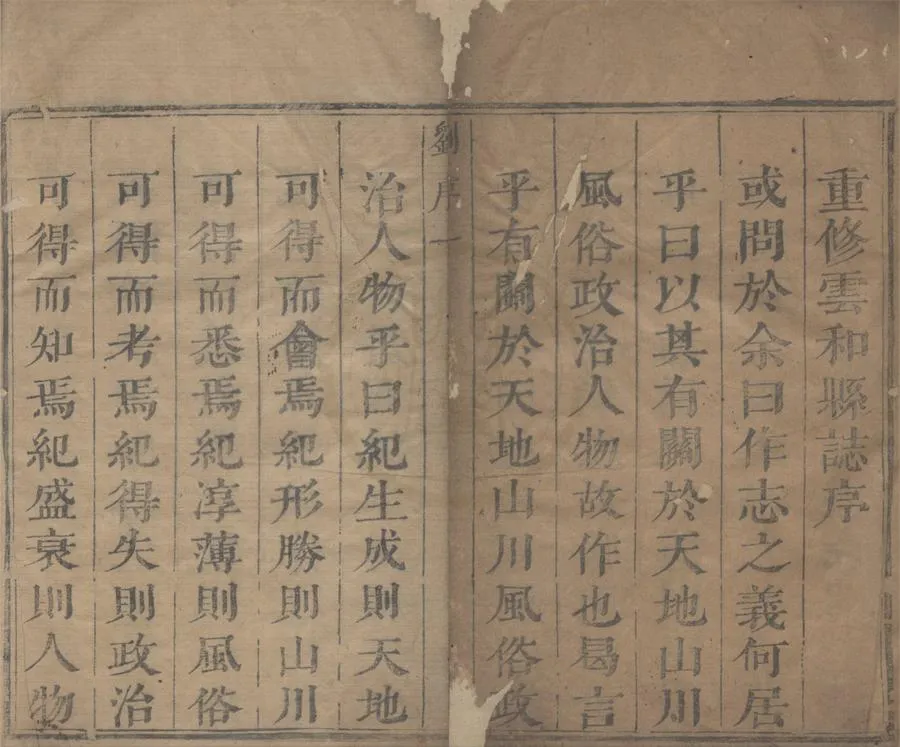 重修雲和縣誌序
或問於余曰作志之義何居
乎曰以其有關於天地山川
風俗政治人物故作也曷言
乎有關於天地山川風俗政
劉序 一
治人物乎曰紀生成則天地
可得而會焉紀形勝則山川
可得而悉焉紀淳薄則風俗
可得而考焉紀得失則政治
可得而知焉紀盛衰則人物